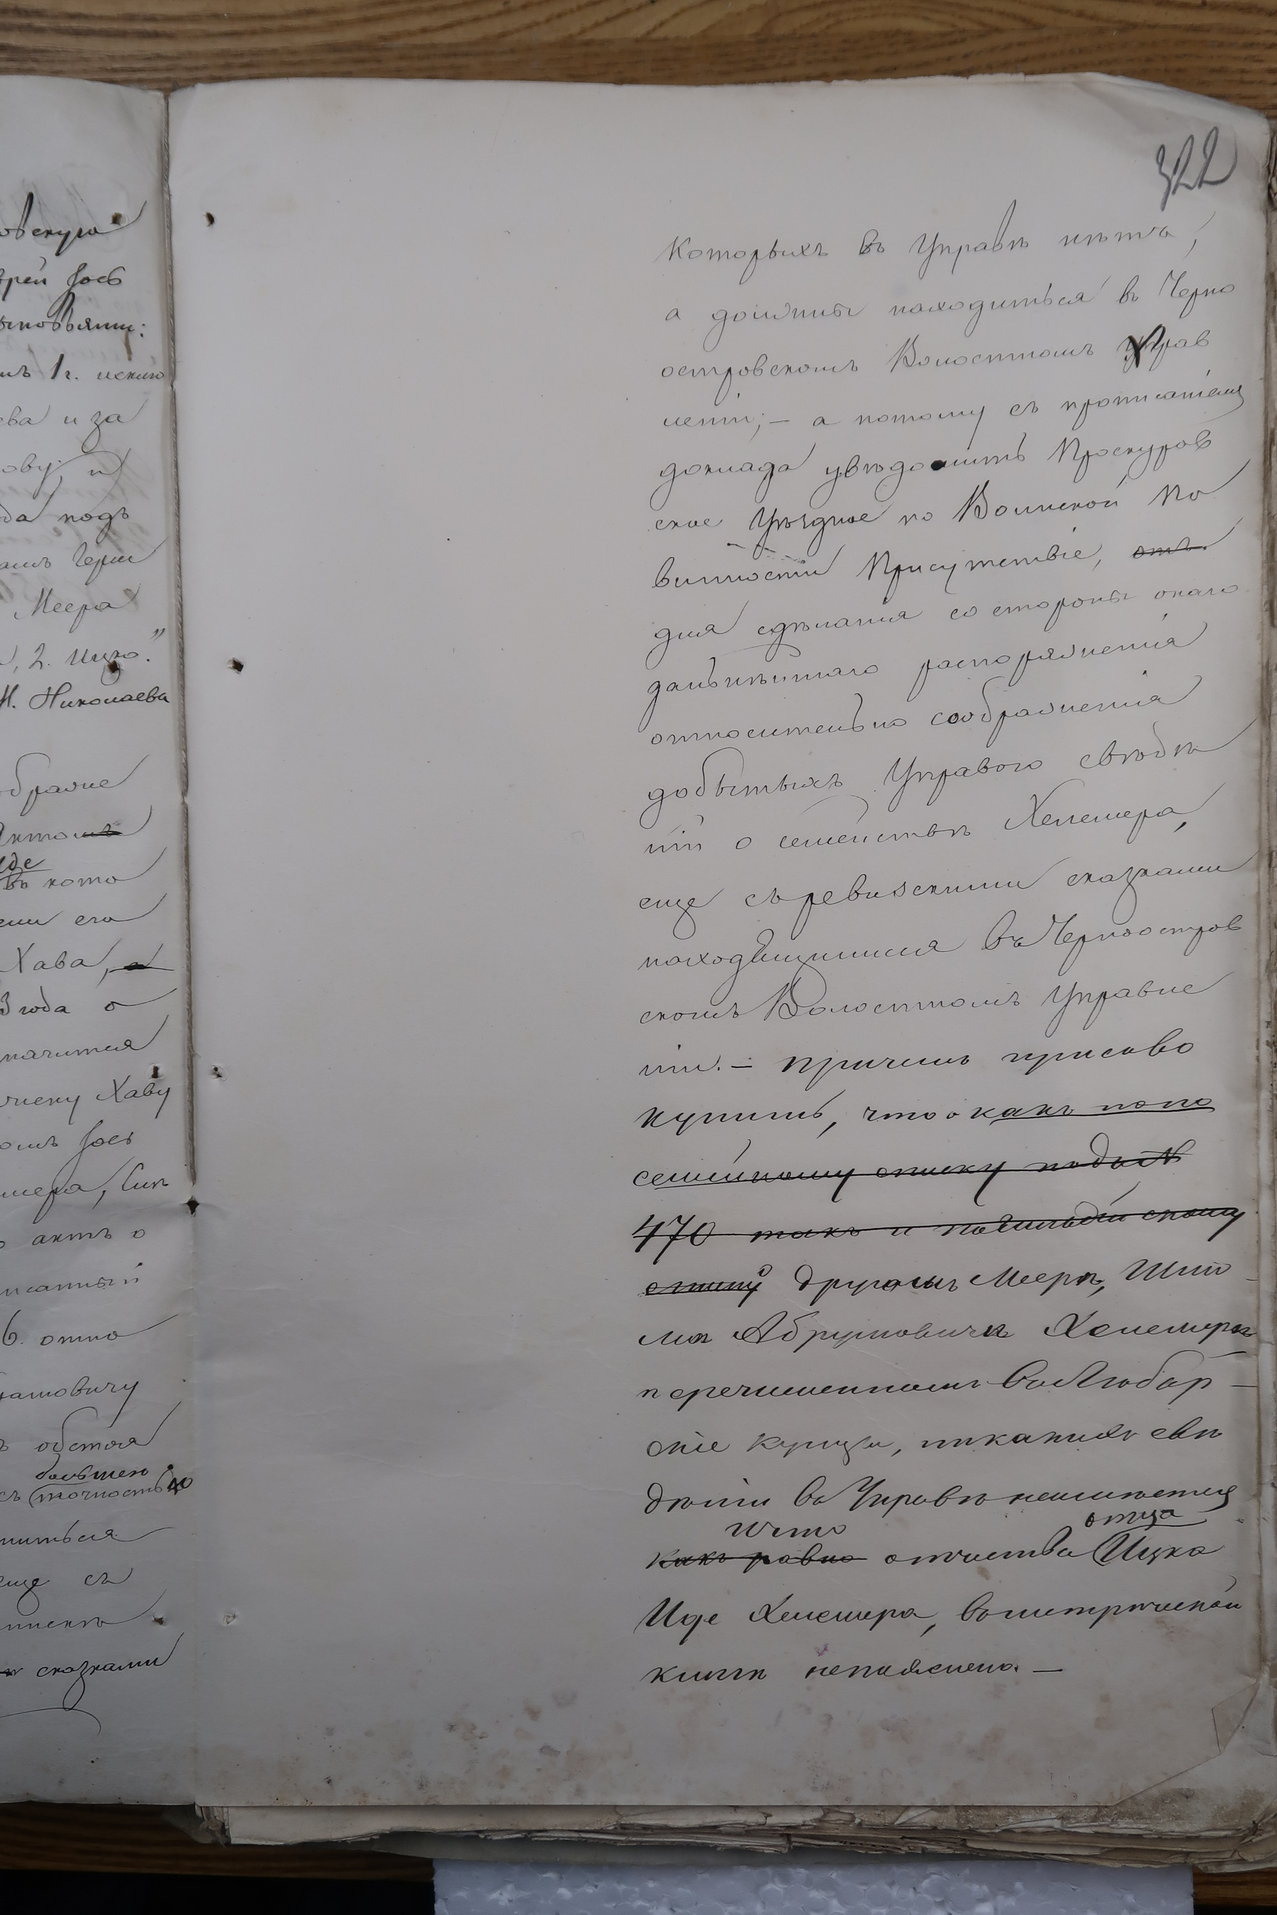 322
которыхъ въ Управѣ нѣтъ,
а должны находиться въ Черно
островскомъ Волостномъ Управ
леніи; — а потому съ прописаніемъ
доклада увѣдомить Проскуров
ское Уѣздное по Воинской По
винности Присутствіе, отъ
для сдѣланія со стороны онаго
дальнѣйшаго распоряженія
относительно соображенія
добытыхъ Управою свѣдѣ
ній о семействѣ Хелемера,
еще съ ревизскими сказками
находящимися въ Черноостров
скомъ Волостномъ Управле
ніи. — Причемъ присово
купить, что о какъ по по
семейному списку подъ №
470 такъ и
другомъ Меерѣ, Шлио
ма Абрумовичѣ Хелемерѣ
перечисленномъ въ Любар-
скіе купцы, никакихъ свѣ
дѣній въ Управѣ неимѣется
и что отца
какъ равно отчества Ицка
Иде Хелемера, въ метрической
книгѣ непояснено. —
овскую
врей Іосъ
сыновьями:
1 г.
ева и за
ову, и
да подъ
Меера
, 2. Ицко."
Н. Николаева
ображе
въ кото
его
Хава, а
3 года о
значится
Хаву
омъ Іосъ
мера,
актъ о
писанный
6. отно
амовичу
обстоя
большею
съ точностью
ниться
еще съ
сказками